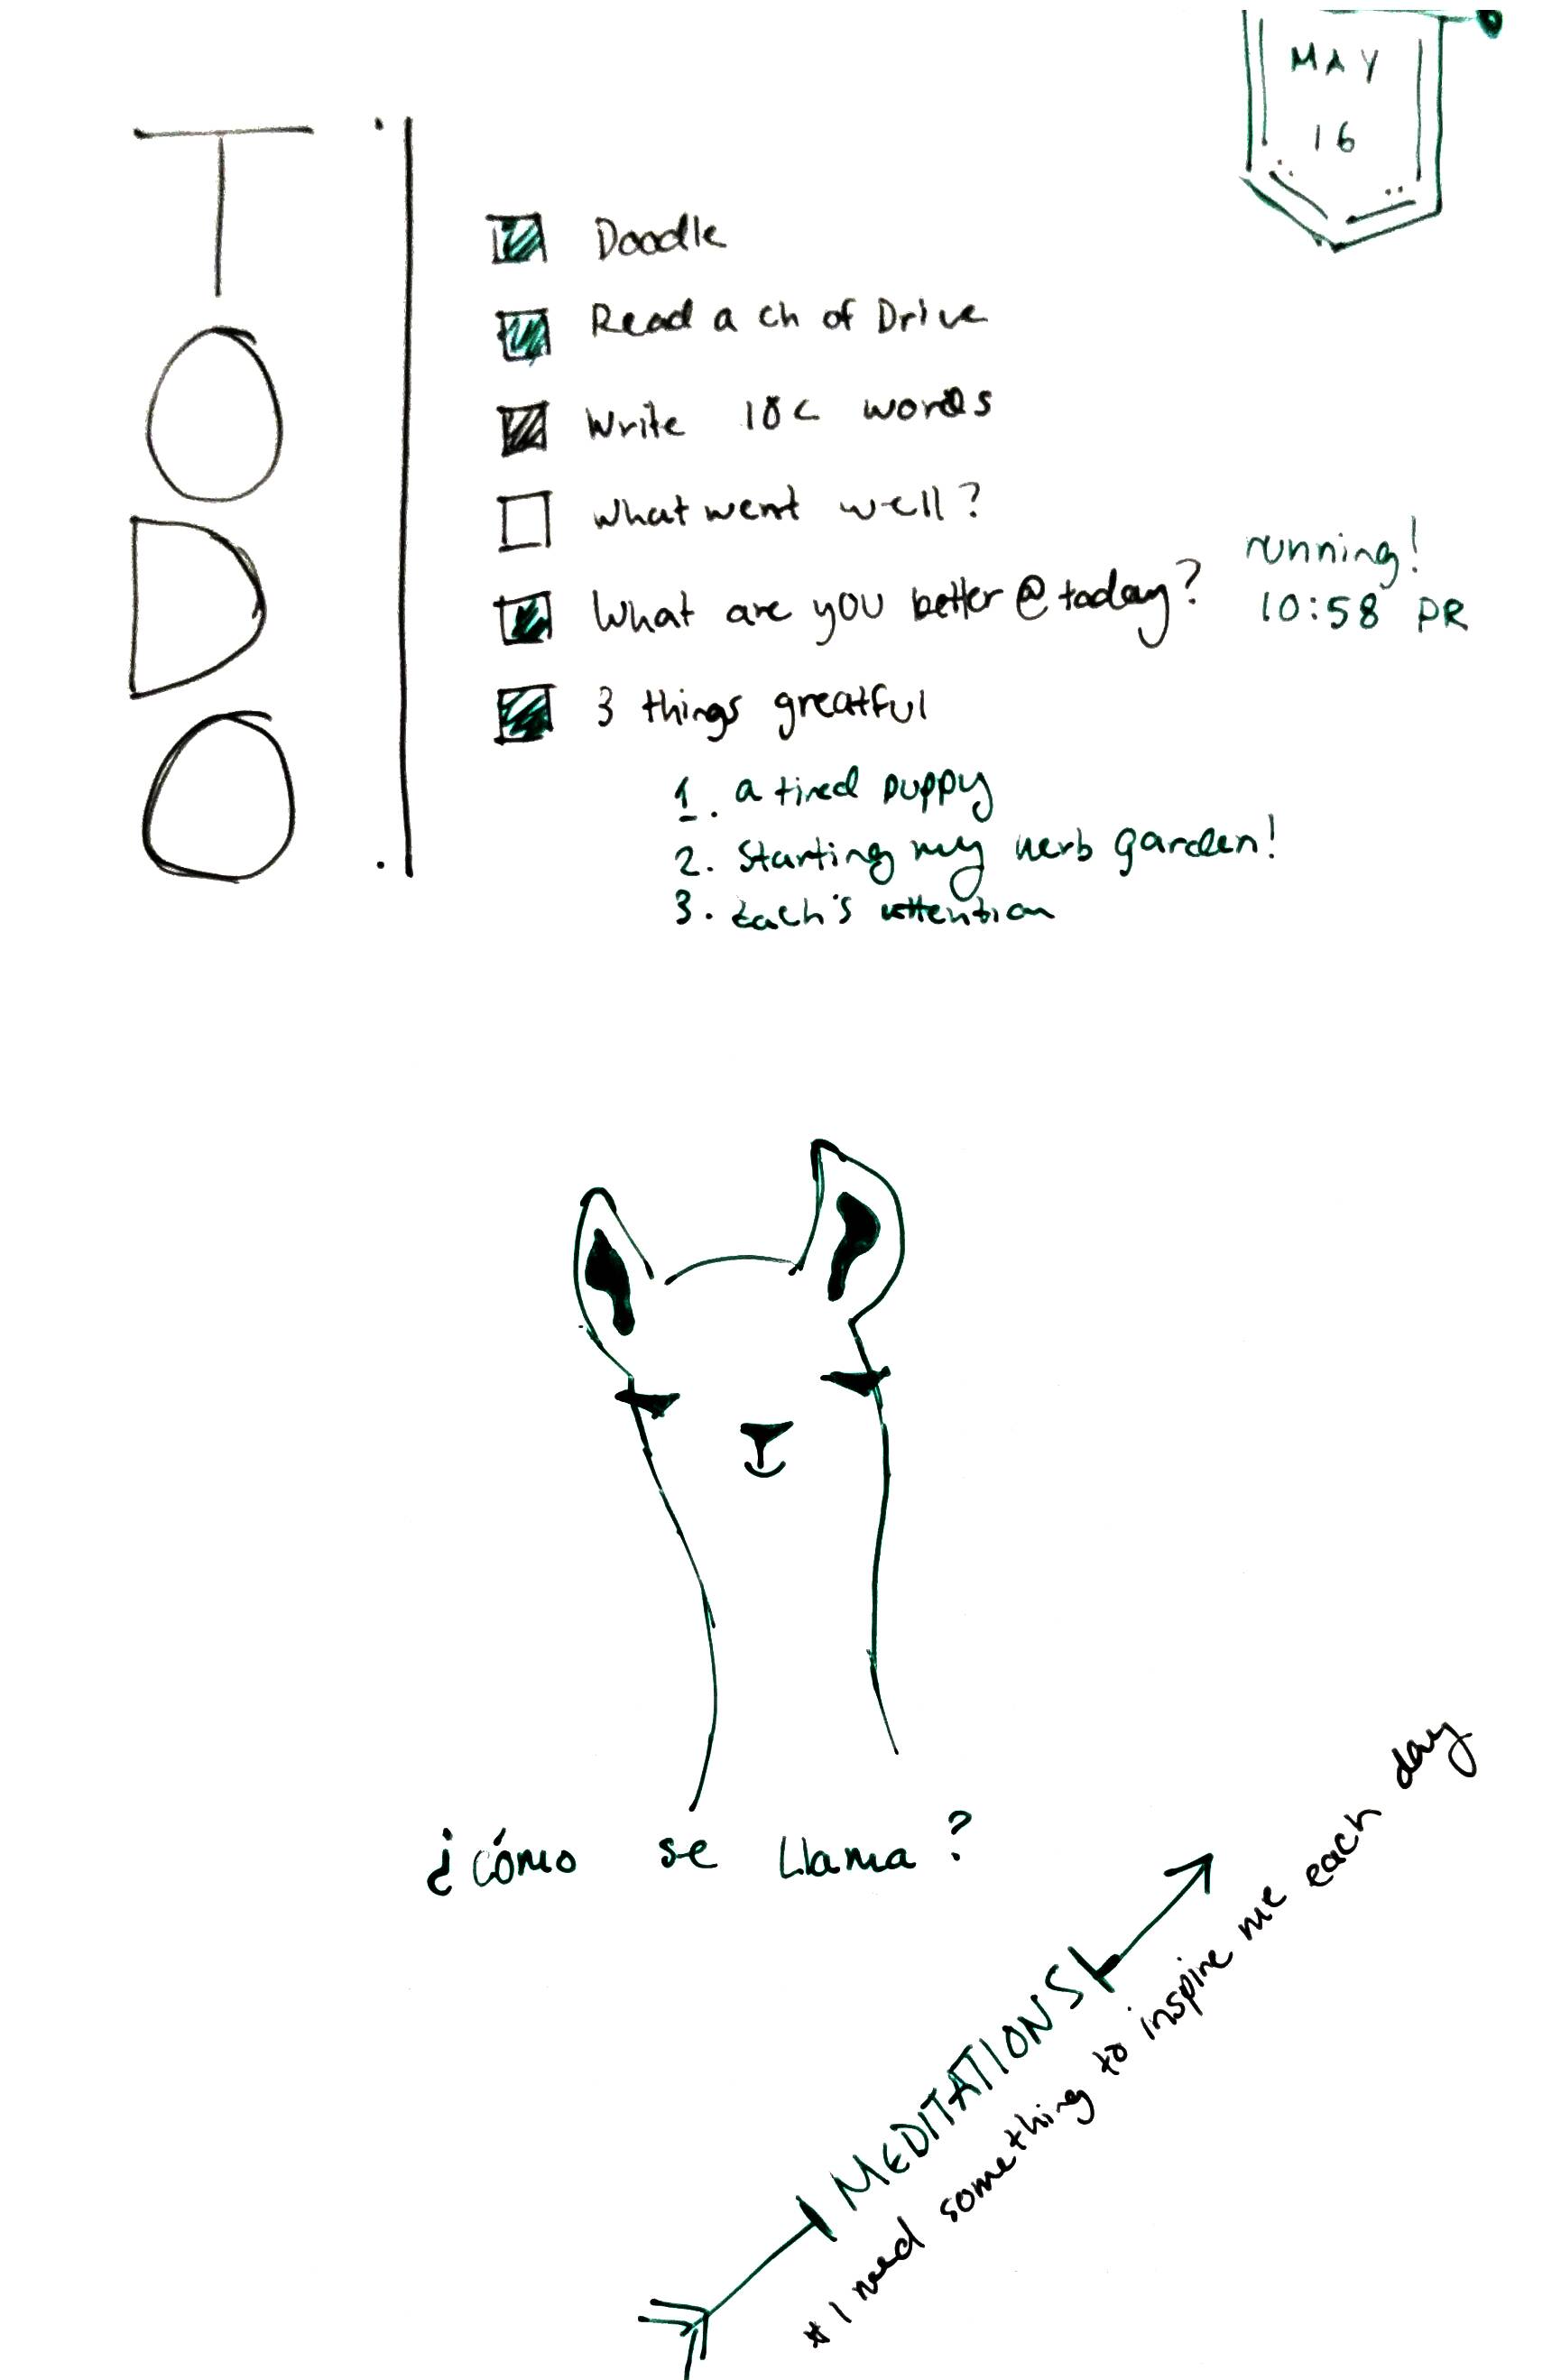 MAY
16
TODO
Doodle
Read a ch of Drive
Write words
What went well?
What are you better @ today?
running!
10:58 PR
3 things greatful
1. a tired puppy
2. Starting my herb garden!
3. Zach's attention
¿cómo se Llama?
MEDITATIONS
* I need something to inspire me each day